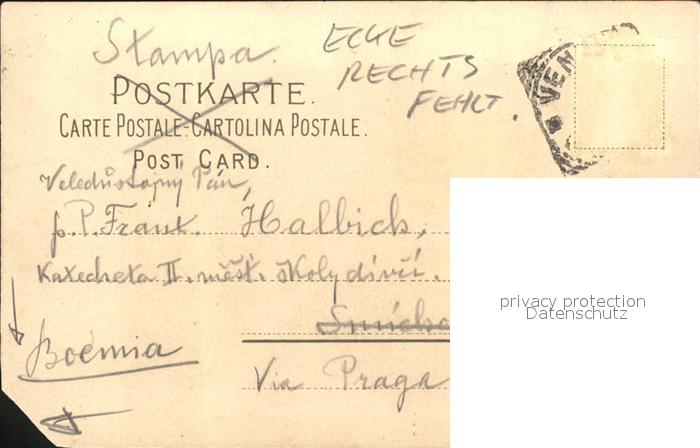 Stampa.
ECKE
RECHTS
FEHLT.
POSTKARTE.
CARTE POSTALE-CARTOLINA POSTALE.
POST CARD.
VEN
Veledůstojný Pán,
p. P. Frant. Halbich,
Katecheta II. měst. školy dívčí.
Smícho
Boemia
Via Praga
privacy protection
Datenschutz